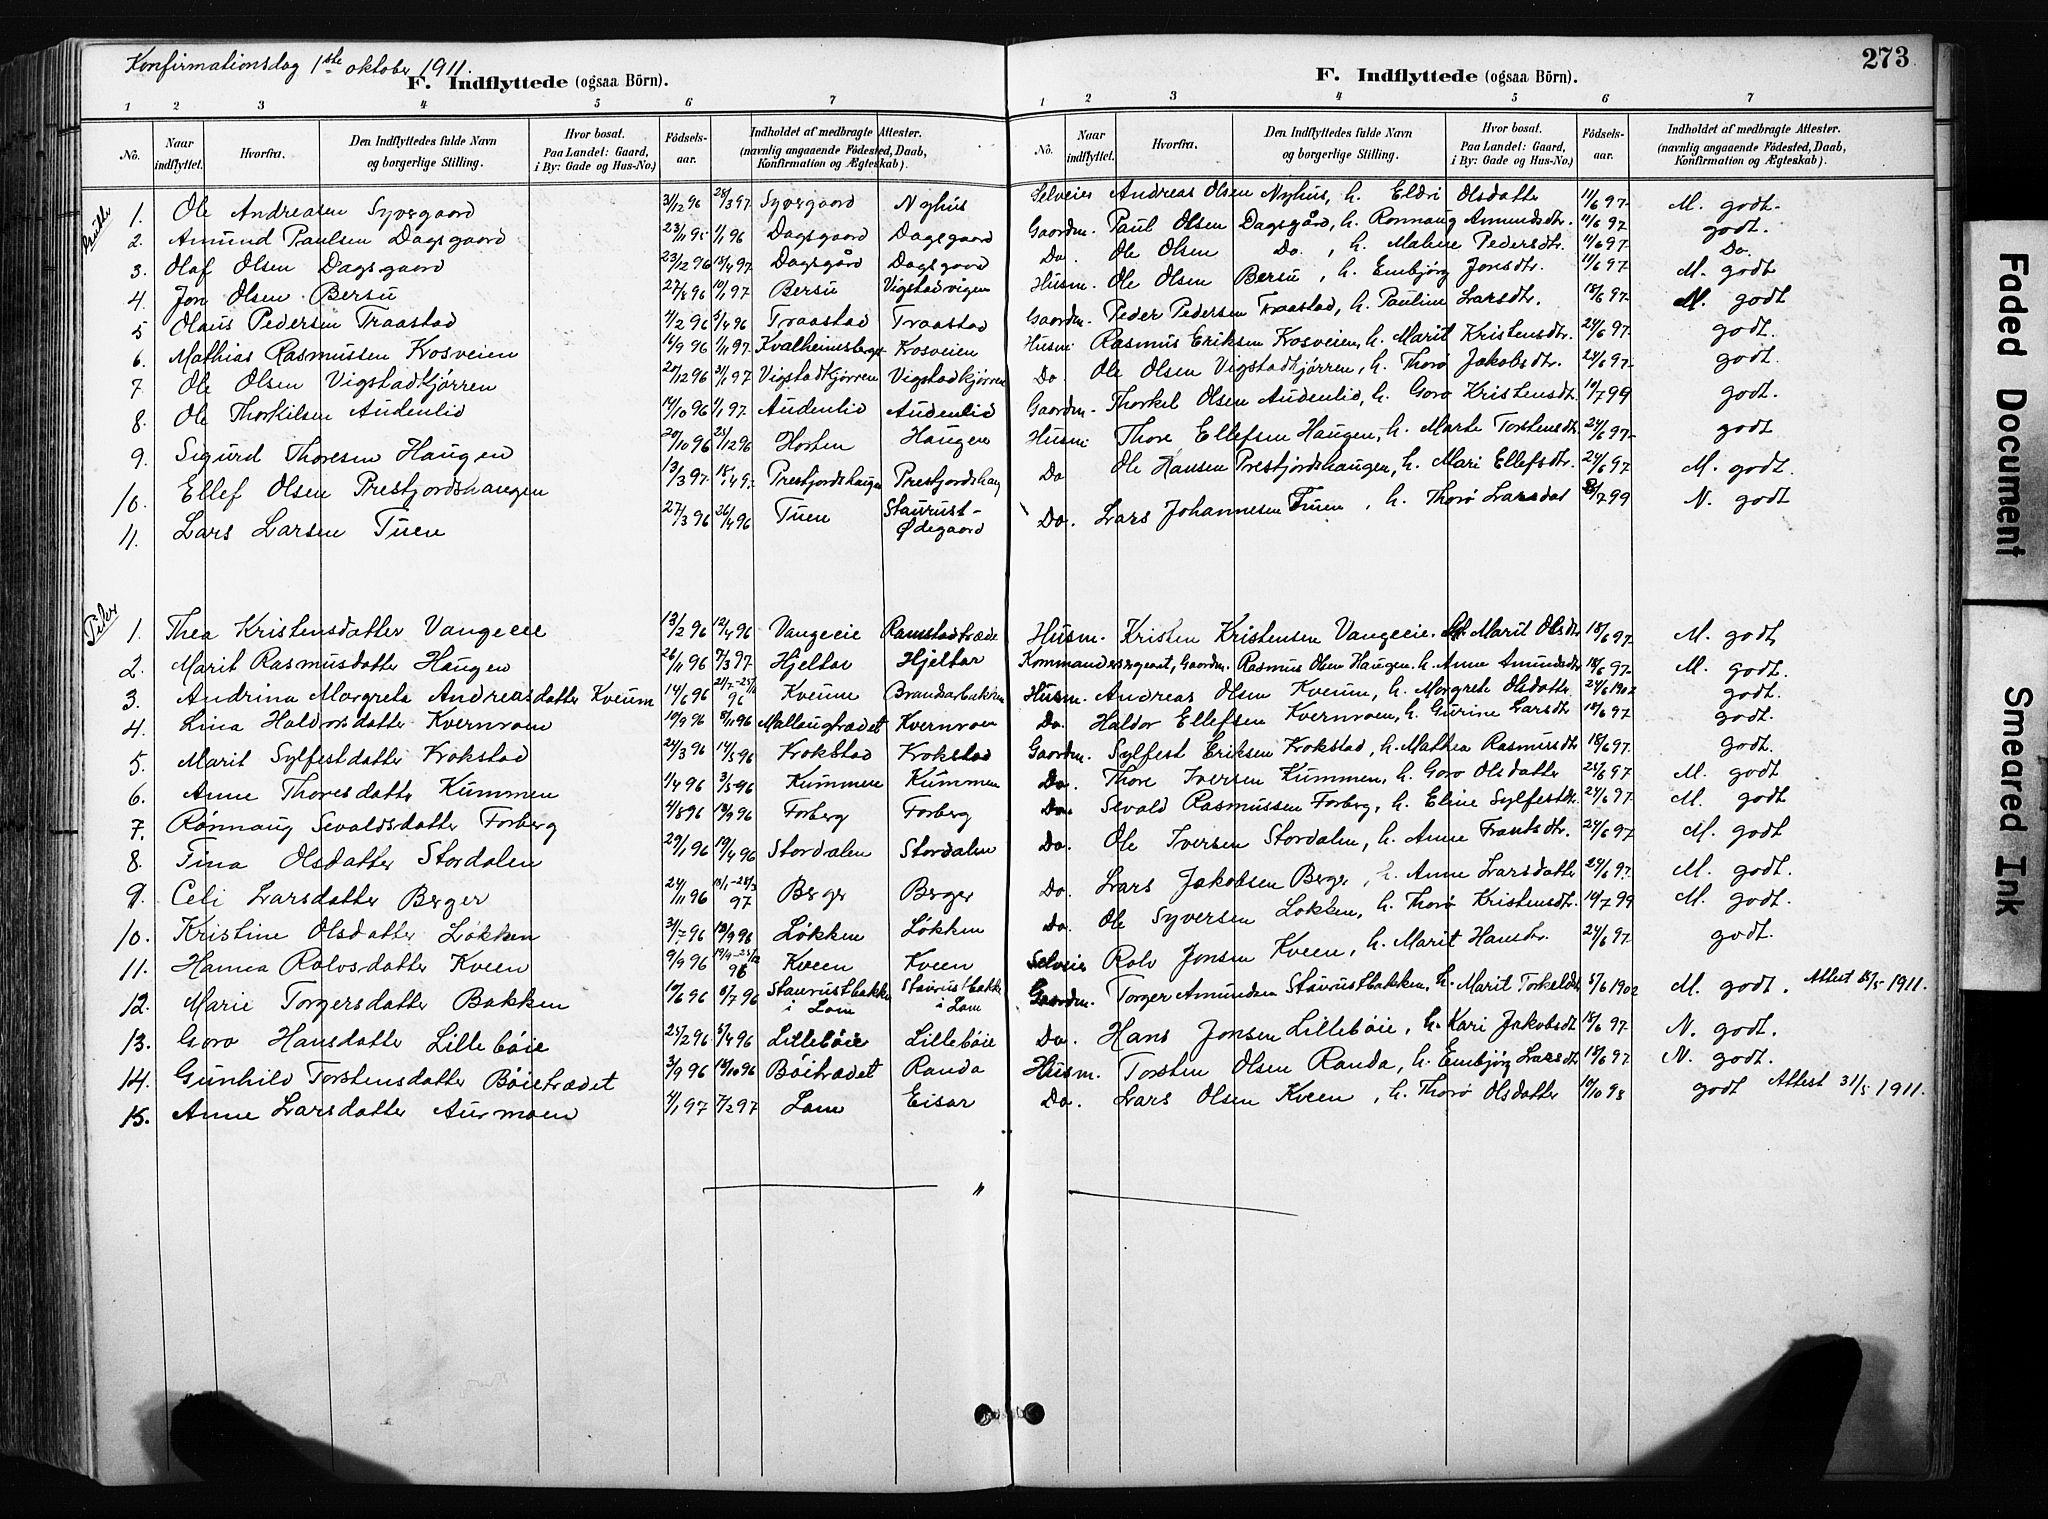 Konfirmationsdag 1ste oktober 1911.
F. Indflyttede (ogsaa Börn).
1 2 3 4 5 6 7
No. Naar indflyttet. Hvorfra. Den Indflyttedes fulde Navn og borgerlige Stilling. Hvor bosat. Paa Landet: Gaard, i By: Gade og Hus-No.) Fødsels-aar. Indholdet af medbragte Attester. (navnlig angaaende Fødested, Daab, Konfirmation og Ægteskab).
273
F. Indflyttede (ogsaa Börn).
1 2 3 4 5 6 7
No. Naar indflyttet. Hvorfra. Den Indflyttedes fulde Navn og borgerlige Stilling. Hvor bosat. Paa Landet: Gaard, i By: Gade og Hus-No.) Fødsels-aar. Indholdet af medbragte Attester. (navnlig angaaende Fødested, Daab, Konfirmation og Ægteskab).
Gutter
1. Ole Andreasen Syvergaard 31/12 96 28/3 97 Syvergaard Nyhus Selveier Andreas Olsen Nyhus, h. Eldri Olsdatter 11/6 97 M. godt.
2. Amund Paulsen Dagsgaard 23/11 95 1/1 96 Dagsgaard Dagsgaard Gaardm. Paul Olsen Dagsgård, h. Rønnaug Amundsdtr. 11/6 97 godt.
3. Olaf Olsen Dagsgaard 23/12 96 18/4 97. Dagsgård Dagsgaard Do. Ole Olsen Do., h. Maline Pedersdtr. 11/6 97. Do.
4. Jon Olsen Bersu 27/8 96 10/1 97 Bersu Vigstadvigen Husm. Ole Olsen Bersu, h. Embjørg Jonsdtr. 11/6 97. M. godt
5 Olaus Pedersen Traastad 2/2 96 5/4 96 Traastad Traastad Gaardm. Peder Pedersen Traastad, h. Pauline Larsdtr. 18/6 97. M. godt
6. Mathias Rasmussen Kosveien 16/9 96 1/11 97. Kvalheimsberget Kosveien Husm. Rasmus Eriksen Kosveien, h. Marit Kristensdtr. 24/6 97. godt.
7. Ole Olsen Vigstadkjørren 20/12 96 31/1 97 Vigstadkjørren Vigstadkjørren Do. Ole Olsen Vigstadkjørren, h. Thorø Jakobsdtr. 24/6 97. godt.
8. Ole Thorkilsen Audenlid 14/10 96 1/1 97. Audenlid Audenlid Gaardm. Thorkel Olsen Audenlid, h. Goro Kristensdt. 10/7 99 godt.
9. Sigurd Thoresen Haugen 20/10 96 25/12 96 Horten Haugen Husm. Thore Ellefsen Haugen, h. Marte Torstensdtr. 24/6 97. godt
10. Ellef Olsen Prestjordshaugen 13/3 97. 18/4 97. Prestjordshaugen Prestjordshaug Do Ole Hansen Prestjordshaugen, h. Mari Ellefsdtr. 24/6 97 M. godt.
11. Lars Larsen Tuen 27/3 96 26/4 96 Tuen Staurust-Ødegaard Do. Lars Johannesen Tuen, h. Thorø Larsdat 8/7 99 N. godt
Piker
1. Thea Kristensdatter Vangeeie 13/2 96 12/4 96 Vangeeie Ramstadtræde Husm. Kristen Kristensen Vangeeie. h. Marit Olsdtr 18/6 97. M. godt
2. Marit Rasmusdatter Haugen 26/11 96 7/3 97 Hjeltar Hjeltar Kommandersergeant, Gaardm. Rasmus Olsen Haugen. h. Anne Amundsdtr 18/6 97. M. godt.
3. Andrina Margreta Andreasdatter Kveum 14/6 96 96 Kveum Brandarbakken Husm. Andreas Olsen Kveum, h. Margrete Olsdatter 24/6 1902 godt.
4. Lina Haldorsdatter Kvernroen 10/9 96 8/11 96 Mallaugtrædet Kvernroen Do. Haldor Ellefsen Kvernroen, h. Gurine Larsdt 18/6 97. godt.
5. Marit Sylfestdatter Krokstad 24/3 96 14/5 96 Krokstad Krokstad Gaardm. Sylfest Eriksen Krokstad, h. Mathea Rasmusdtr 18/6 97. godt.
6. Anne Thoresdatter Kummen 1/4 96 3/5 96 Kummen Kummen Do. Thore Iversen Kummen, h. Goro Olsdatter 24/6 97 M. godt
7. Rønnaug Sevaldsdatter Forberg 4/8 96 13/9 96 Forberg Forberg Do. Sevald Rasmussen Forberg, h. Eline Sylfestdtr. 24/6 97. M. godt
8. Tina Olsdatter Stordalen 29/1 96 19/4 96 Stordalen Stordalen Do. Ole Iversen Stordalen, h. Anne Frantsdtr. 24/6 97 M. godt
9. Celi Larsdatter Berger 24/11 96 97 Berger Berger Do. Lars Jakobsen Berger, h. Anne Larsdatter 24/6 97. M. godt.
10. Kristine Olsdatter Løkken 31/7 96 13/9 96 Løkken Løkken Do. Ole Syversen Løkken, h. Thorø Kristensdtr. 10/7 99 M. godt.
11. Hanna Rolvsdatter Kveen 9/9 96 96 Kveen Kveen Selveier Rolv Jonsen Kveen, h. Marit Hansdtr. 24/6 97. godt.
12. Marie Torgersdatter Bakken 10/6 96 5/7 96 Staurustbakken i Lom Staurustbakk. i Lom Gaardm. Torger Amundsen Staurustbakken, h. Marit Torkelsdtr 5/6 1902 M. godt. Attest 15/5 1911.
13. Goro Hansdatter Lillebøie 25/2 96 5/4 96 Lillebøie Lillebøie Do. Hans Jonsen Lillebøie, h. Kari Jakobsdt 18/6 97. N. godt.
14. Gunhild Torstensdatter Bøietrædet 3/9 96 18/10 96 Bøitrædet Randa Husm. Torsten Olsen Randa, h. Embjørg Larsdt 18/6 97. N. godt.
15. Anne Larsdatter Aurmoen 4/1 97 7/2 97 Lom Eisar Do. Lars Olsen Kveen, h. Thorø Olsdatter 10/10 98 godt Attest 31/5 1911.
Faded Document
Smeared Ink